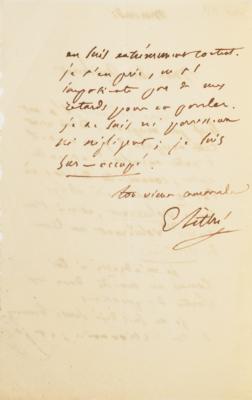 en suis extrêmement content.
je t'en prie, ne t'
impatiente pas de mes
retards pour en parler.
je ne suis ni paresseux
ni négligent; je suis
sur-occupé.
ton vieux camarade
E Littré